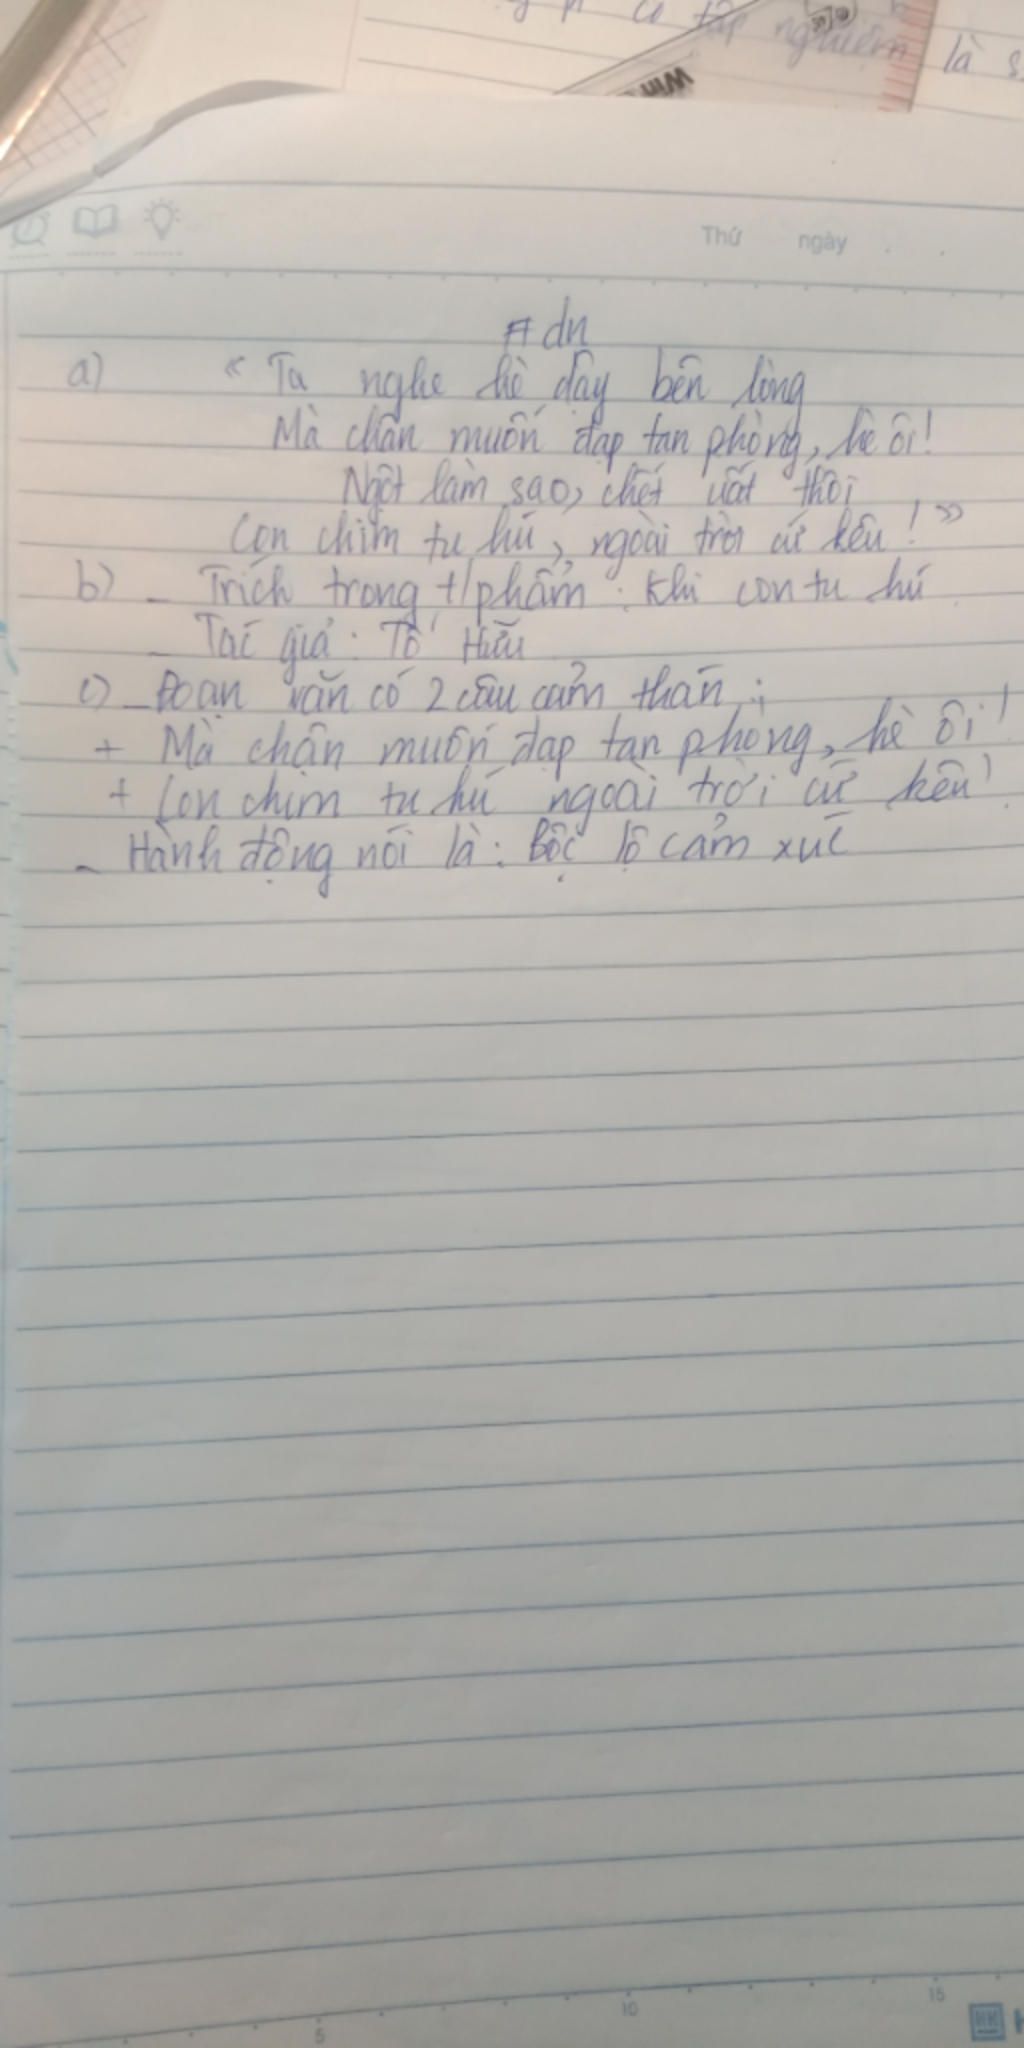 cô tập nghiệm là s
WIN
Thứ ngày
# dn
a) “ Ta nghe hè dậy bên lòng
Mà chân muốn đạp tan phòng, hè ôi!
Ngột làm sao, chết uất thôi
Con chim tu hú, ngoài trời cứ kêu! ”
b) - Trích trong t/phẩm : Khi con tu hú.
- Tác giả : Tố Hữu
c) - Đoạn văn có 2 câu cảm thán :
+ Mà chân muốn đạp tan phòng, hè ôi!
+ Con chim tu hú ngoài trời cứ kêu!
- Hành động nói là : Bộc lộ cảm xúc
5 10 15
HK